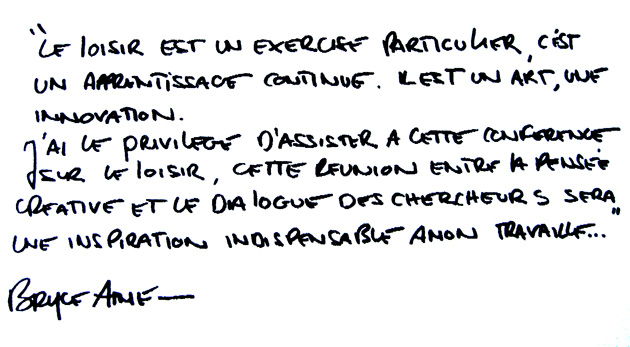 "LE LOISIR EST UN EXERCISE PARTICULIER, C'EST
UN APPRENTISSAGE CONTINUE. IL EST UN ART, UNE
INNOVATION.
J'AI LE PRIVILEGE D'ASSISTER A CETTE CONFERENCE
SUR LE LOISIR, CETTE REUNION ENTRE LA PENSÉE
CREATIVE ET LE DIALOGUE DES CHERCHEURS SERA
UNE INSPIRATION INDISPENSABLE A MON TRAVAILLE..."
BRYCE